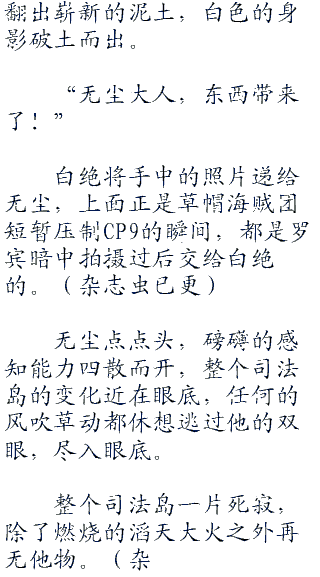 翻出崭新的泥土，白色的身
影破土而出。
“无尘大人，东西带来
了！”
白绝将手中的照片递给
无尘，上面正是草帽海贼团
短暂压制CP9的瞬间，都是罗
宾暗中拍摄过后交给白绝
的。（杂志虫已更）
无尘点点头，磅礴的感
知能力四散而开，整个司法
岛的变化近在眼底，任何的
风吹草动都休想逃过他的双
眼，尽入眼底。
整个司法岛一片死寂，
除了燃烧的滔天大火之外再
无他物。（杂